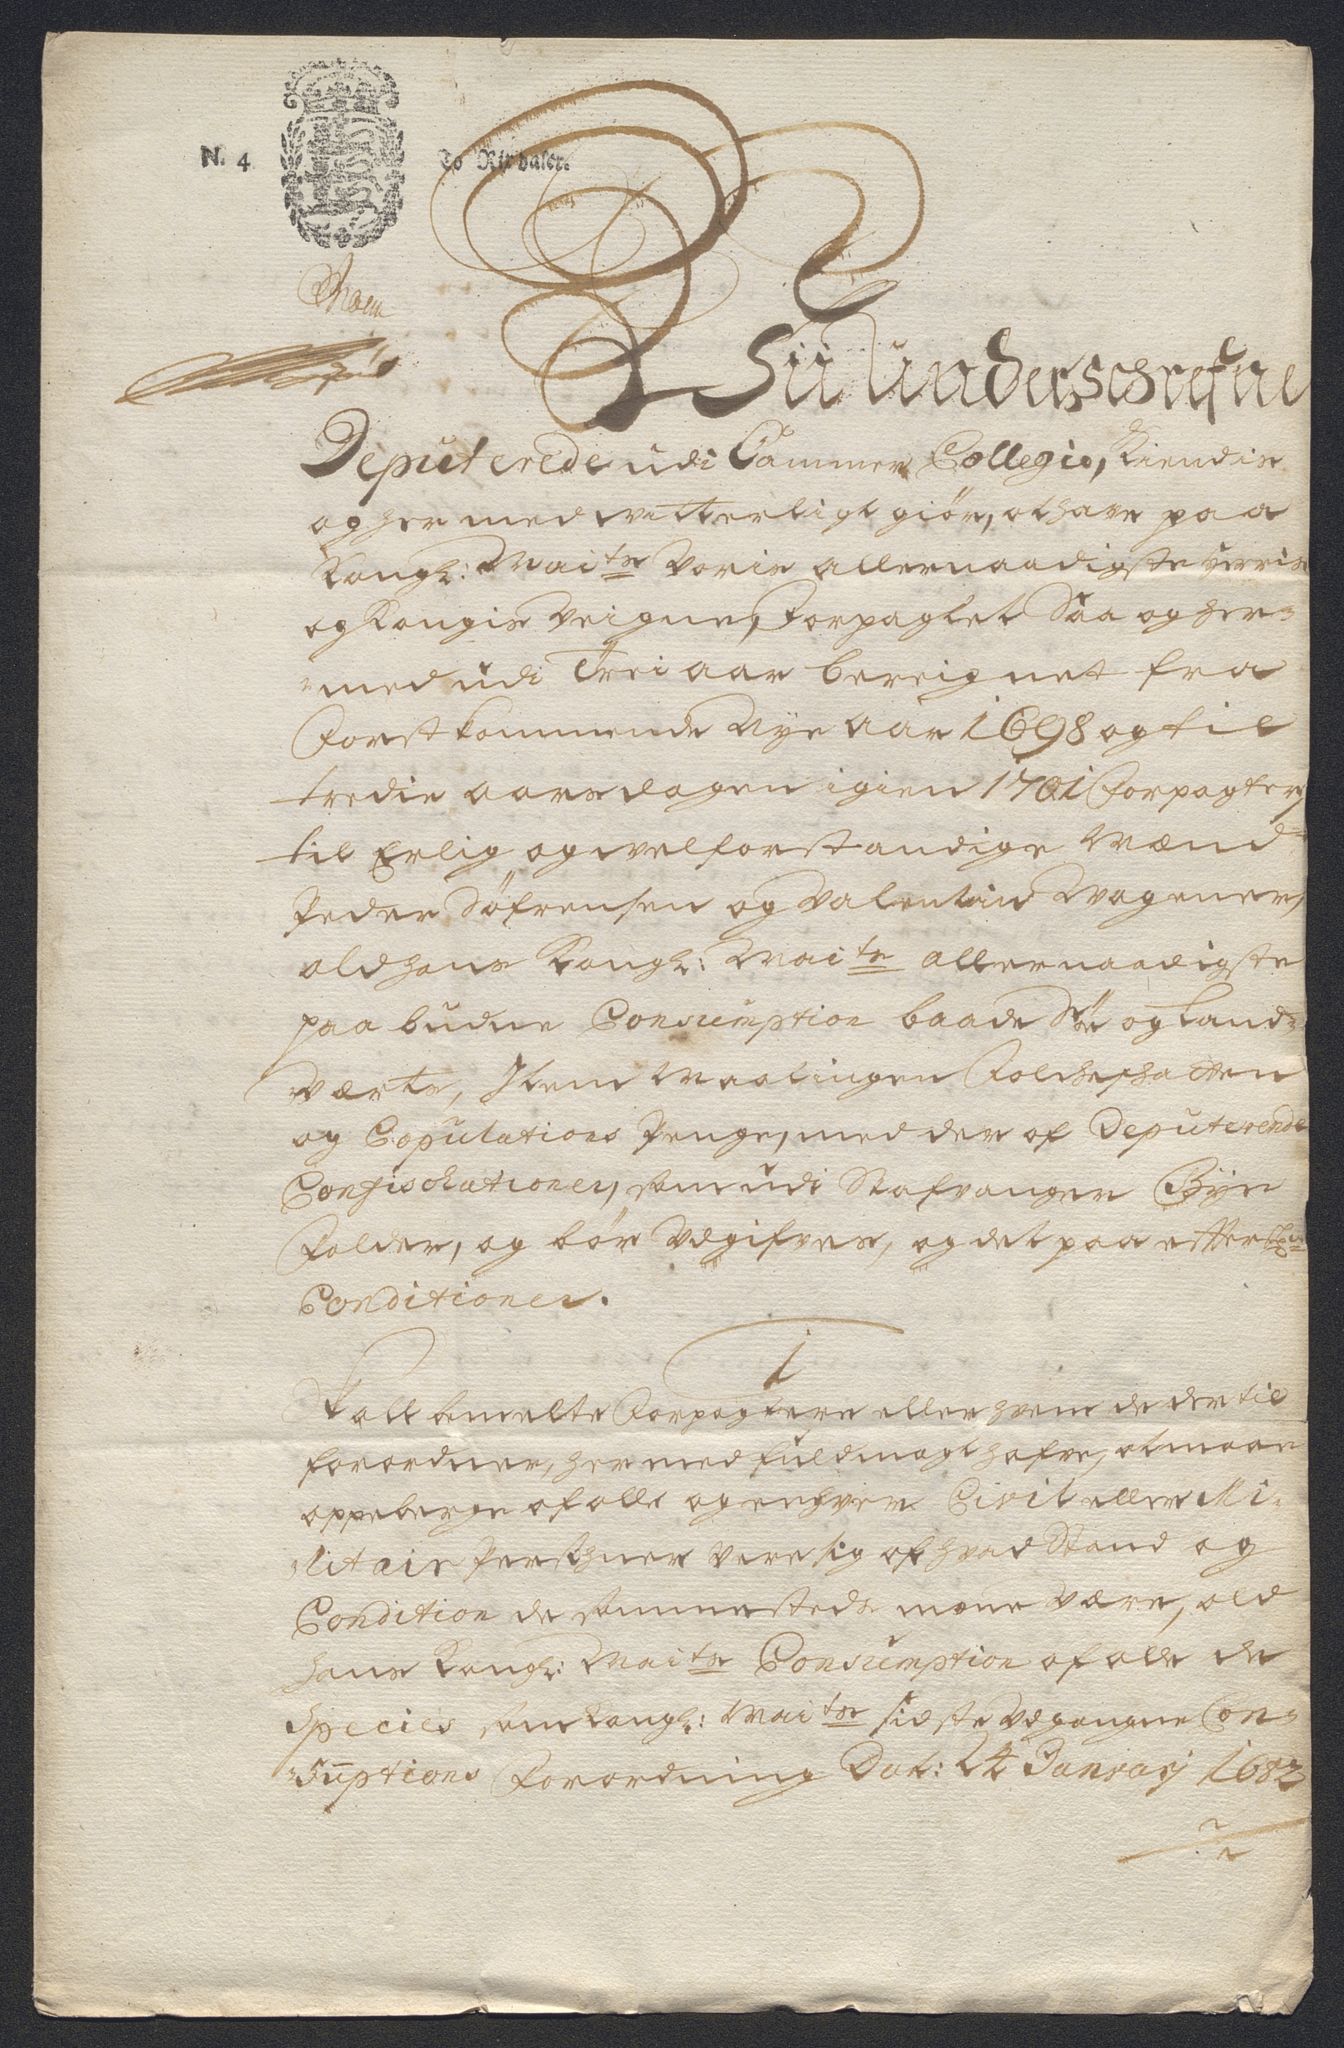 N. 4. To Rixdaler.
Wii underschrefne
Deputerede udi Cammer Collegio, Kiendis
og her med witterligt giör, at have paa
Kongl: Maits Voris allernaadigste Herris
og Kongis Veigne, Forpagtet Saa og her-
-med udi Trei aar bereignet fra
Forstkommende Nye Aar 1698 og til
tredie aarsdagen igien 1701 Forpagter
til Erlig og welforstandige Mænd
Peder Söfrensen og Valentin Wagener,
ald hans Kongl: Maits allernaadigste
paabudne Consumption baade Söe og Land-
værts, Item Maalingen Folcheskatten
og Copulations Penge, med der af Deputerende
Confischationer, som udi Stafvanger Bÿe
Falder, og bör Udgifves, og det paa effter
Conditioner.
1
Skall bemelte Forpagtere eller hvem de der til
forordner, her med fuldmagt hafve, at maae
oppeberge af alle og enhver Civil eller Mi-
-litair Perschner være sig af hvad Stand og
Condition de sammesteds maae Være, ald
hans Kongl: Maits Consumption af alle de
Species som Kongl: Maits sidste Udgangne Con-
-sūptions Forordning Dat: 24 Januarj 1682